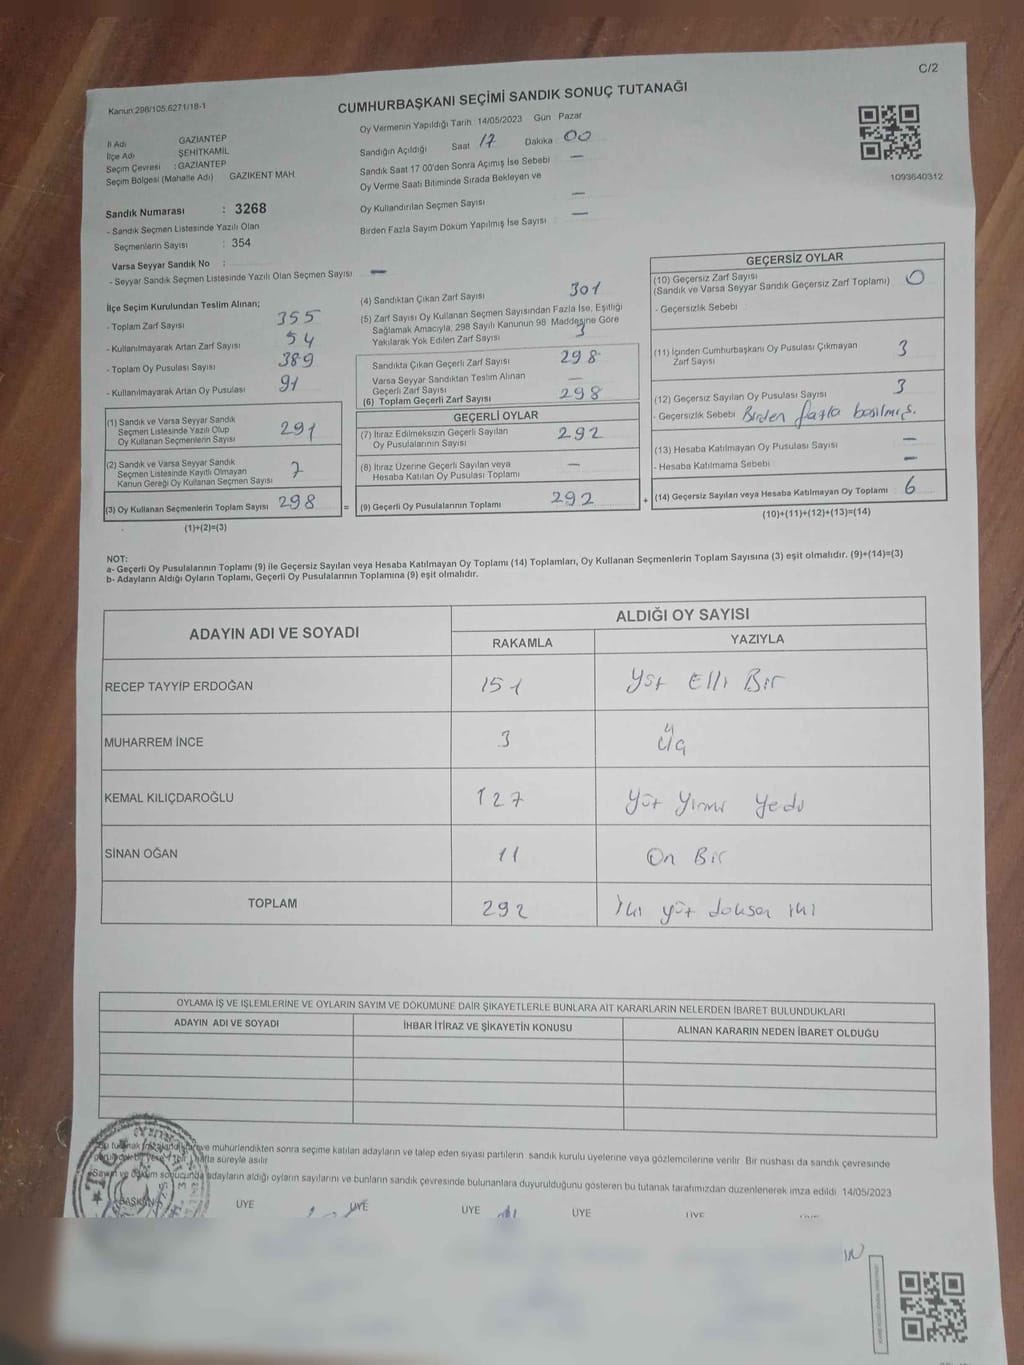 C/2
Kanun:298/105,6271/18-1
CUMHURBAŞKANI SEÇİMİ SANDIK SONUÇ TUTANAĞI
İl Adı GAZIANTEP
İlçe Adı ŞEHİTKAMİL
Seçim Çevresi : GAZIANTEP
Seçim Bölgesi (Mahalle Adı) GAZIKENT MAH
Sandık Numarası : 3268
- Sandık Seçmen Listesinde Yazılı Olan
Seçmenlerin Sayısı : 354
Varsa Seyyar Sandık No :
- Seyyar Sandık Seçmen Listesinde Yazılı Olan Seçmen Sayısı –
Oy Vermenin Yapıldığı Tarih 14/05/2023 Gün Pazar
Sandığın Açıldığı Saat 17 Dakika 00
Sandık Saat 17 00'den Sonra Açımış İse Sebebi –
Oy Verme Saati Bitiminde Sırada Bekleyen ve
Oy Kullandırılan Seçmen Sayısı –
Birden Fazla Sayım Döküm Yapılmış İse Sayısı –
1093640312
İlçe Seçim Kurulundan Teslim Alınan;
- Toplam Zarf Sayısı 355
- Kullanılmayarak Artan Zarf Sayısı 54
- Toplam Oy Pusulası Sayısı 389
- Kullanılmayarak Artan Oy Pusulası 91
(1) Sandık ve Varsa Seyyar Sandık
Seçmen Listesinde Yazılı Olup
Oy Kullanan Seçmenlerin Sayısı 291
(2) Sandık ve Varsa Seyyar Sandık
Seçmen Listesinde Kayıtlı Olmayan
Kanun Gereği Oy Kullanan Seçmen Sayısı 7
(3) Oy Kullanan Seçmenlerin Toplam Sayısı 298 =
(1)+(2)=(3)
(4) Sandıktan Çıkan Zarf Sayısı 301
(5) Zarf Sayısı Oy Kullanan Seçmen Sayısından Fazla İse, Eşitliği
Sağlamak Amacıyla, 298 Sayılı Kanunun 98 Maddesine Göre
Yakılarak Yok Edilen Zarf Sayısı 3
Sandıkta Çıkan Geçerli Zarf Sayısı 298
Varsa Seyyar Sandıktan Teslim Alınan
Geçerli Zarf Sayısı –
(6) Toplam Geçerli Zarf Sayısı 298
GEÇERLİ OYLAR
(7) İtiraz Edilmeksizin Geçerli Sayılan
Oy Pusulalarının Sayısı 292
(8) İtiraz Üzerine Geçerli Sayılan veya
Hesaba Katılan Oy Pusulası Toplamı –
(9) Geçerli Oy Pusulalarının Toplamı 292 +
GEÇERSİZ OYLAR
(10) Geçersiz Zarf Sayısı
(Sandık ve Varsa Seyyar Sandık Geçersiz Zarf Toplamı) 0
- Geçersizlik Sebebi
(11) İçinden Cumhurbaşkanı Oy Pusulası Çıkmayan
Zarf Sayısı 3
(12) Geçersiz Sayılan Oy Pusulası Sayısı 3
- Geçersizlik Sebebi Birden fazla basılmış.
(13) Hesaba Katılmayan Oy Pusulası Sayısı –
- Hesaba Katılmama Sebebi –
(14) Geçersiz Sayılan veya Hesaba Katılmayan Oy Toplamı 6
(10)+(11)+(12)+(13)=(14)
NOT:
a- Geçerli Oy Pusulalarının Toplamı (9) ile Geçersiz Sayılan veya Hesaba Katılmayan Oy Toplamı (14) Toplamları, Oy Kullanan Seçmenlerin Toplam Sayısına (3) eşit olmalıdır. (9)+(14)=(3)
b- Adayların Aldığı Oyların Toplamı, Geçerli Oy Pusulalarının Toplamına (9) eşit olmalıdır.
ADAYIN ADI VE SOYADI
ALDIĞI OY SAYISI
RAKAMLA YAZIYLA
RECEP TAYYİP ERDOĞAN 151 Yüz Elli Bir
MUHARREM İNCE 3 Üç
KEMAL KILIÇDAROĞLU 127 Yüz Yirmi Yedi
SİNAN OĞAN 11 On Bir
TOPLAM 292 İki yüz doksan iki
OYLAMA İŞ VE İŞLEMLERİNE VE OYLARIN SAYIM VE DÖKÜMÜNE DAİR ŞİKAYETLERLE BUNLARA AİT KARARLARIN NELERDEN İBARET BULUNDUKLARI
ADAYIN ADI VE SOYADI İHBAR İTİRAZ VE ŞİKAYETİN KONUSU ALINAN KARARIN NEDEN İBARET OLDUĞU
Bu tutanak ve mühürlendikten sonra seçime katılan adayların ve talep eden siyasi partilerin sandık kurulu üyelerine veya gözlemcilerine verilir Bir nüshası da sandık çevresinde
hafta süreyle asılır
Sayım ve döküm sonucunda adayların aldığı oyların sayılarını ve bunların sandık çevresinde bulunanlara duyurulduğunu gösteren bu tutanak tarafımızdan düzenlenerek imza edildi 14/05/2023
BAŞKAN ÜYE ÜYE ÜYE ÜYE ÜYE